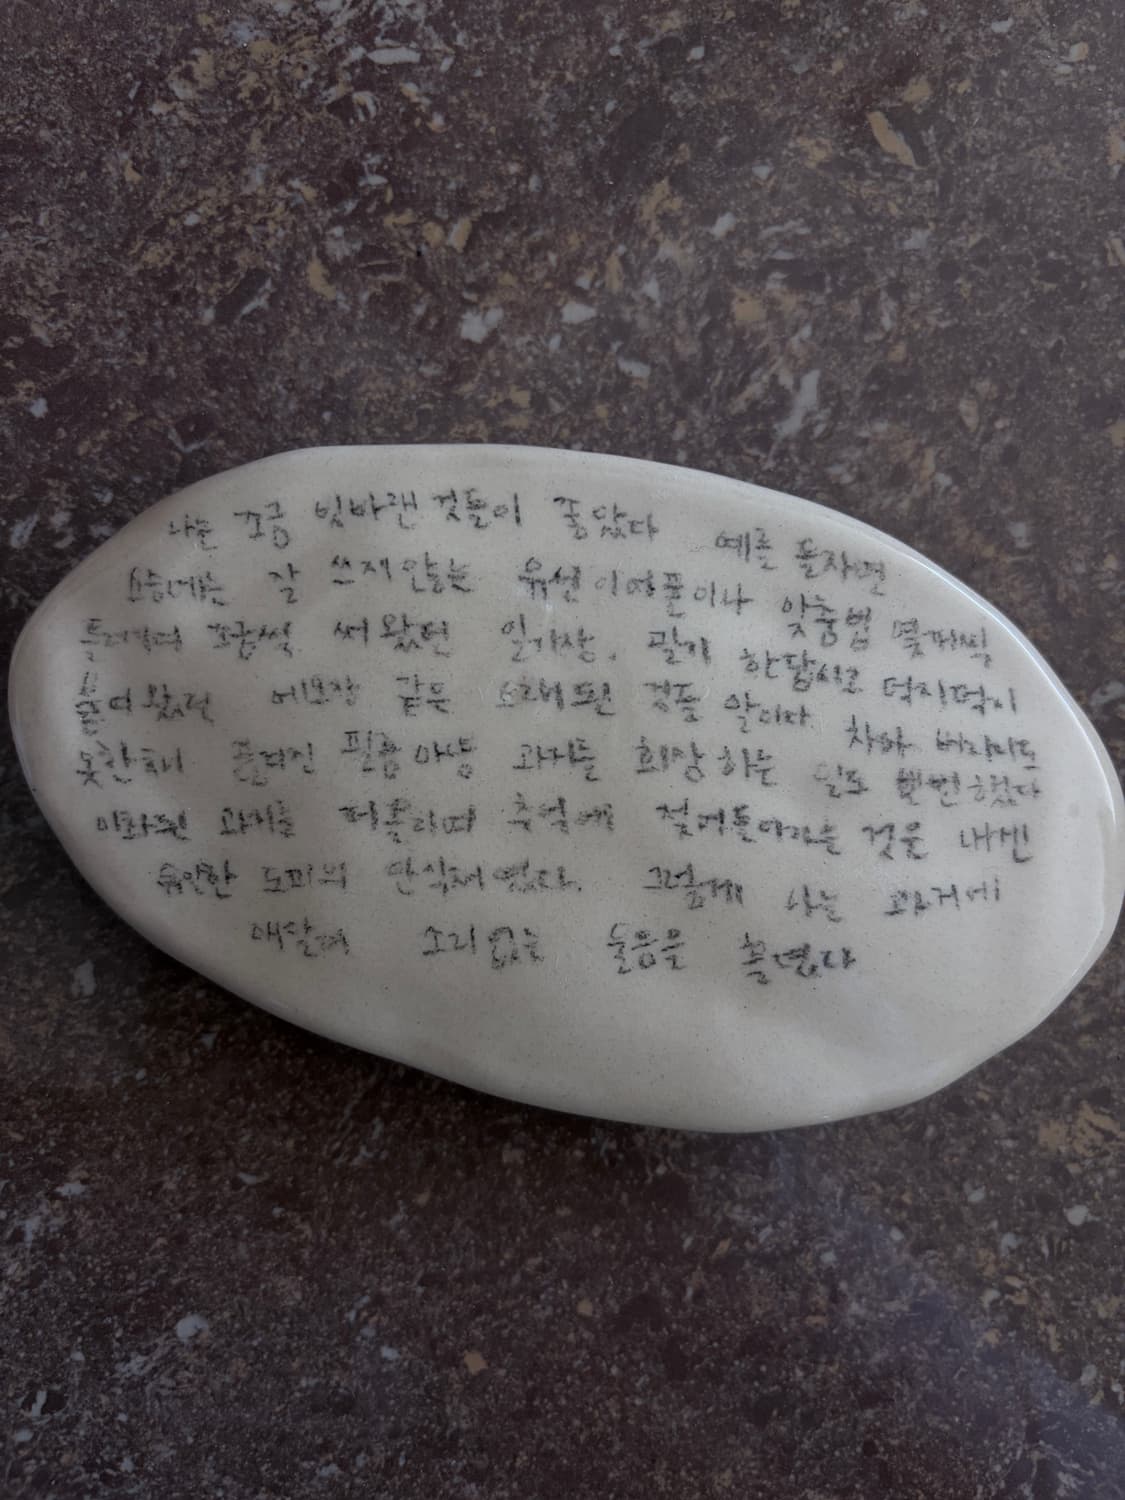 나는 조금 빛바랜 것들이 좋았다 예를 들자면
요즘에는 잘 쓰지 않는 유선 이어폰이나 맞춤법 몇개씩
틀려가며 조금씩 써 왔던 일기장, 딸기 한 답시고 덕지덕지
붙여 왔던 메모장 같은 오래된 것들 말이다 차마 버리지도
못한 채 흩려진 필름 마냥 과거를 회상하는 일도 빈번했다
미화된 과거를 떠올리며 추억에 젖어들어가는 것은 내겐
유일한 도피의 안식처였다. 그렇게 나는 과거에
매달려 소리없는 울음을 흘렸다